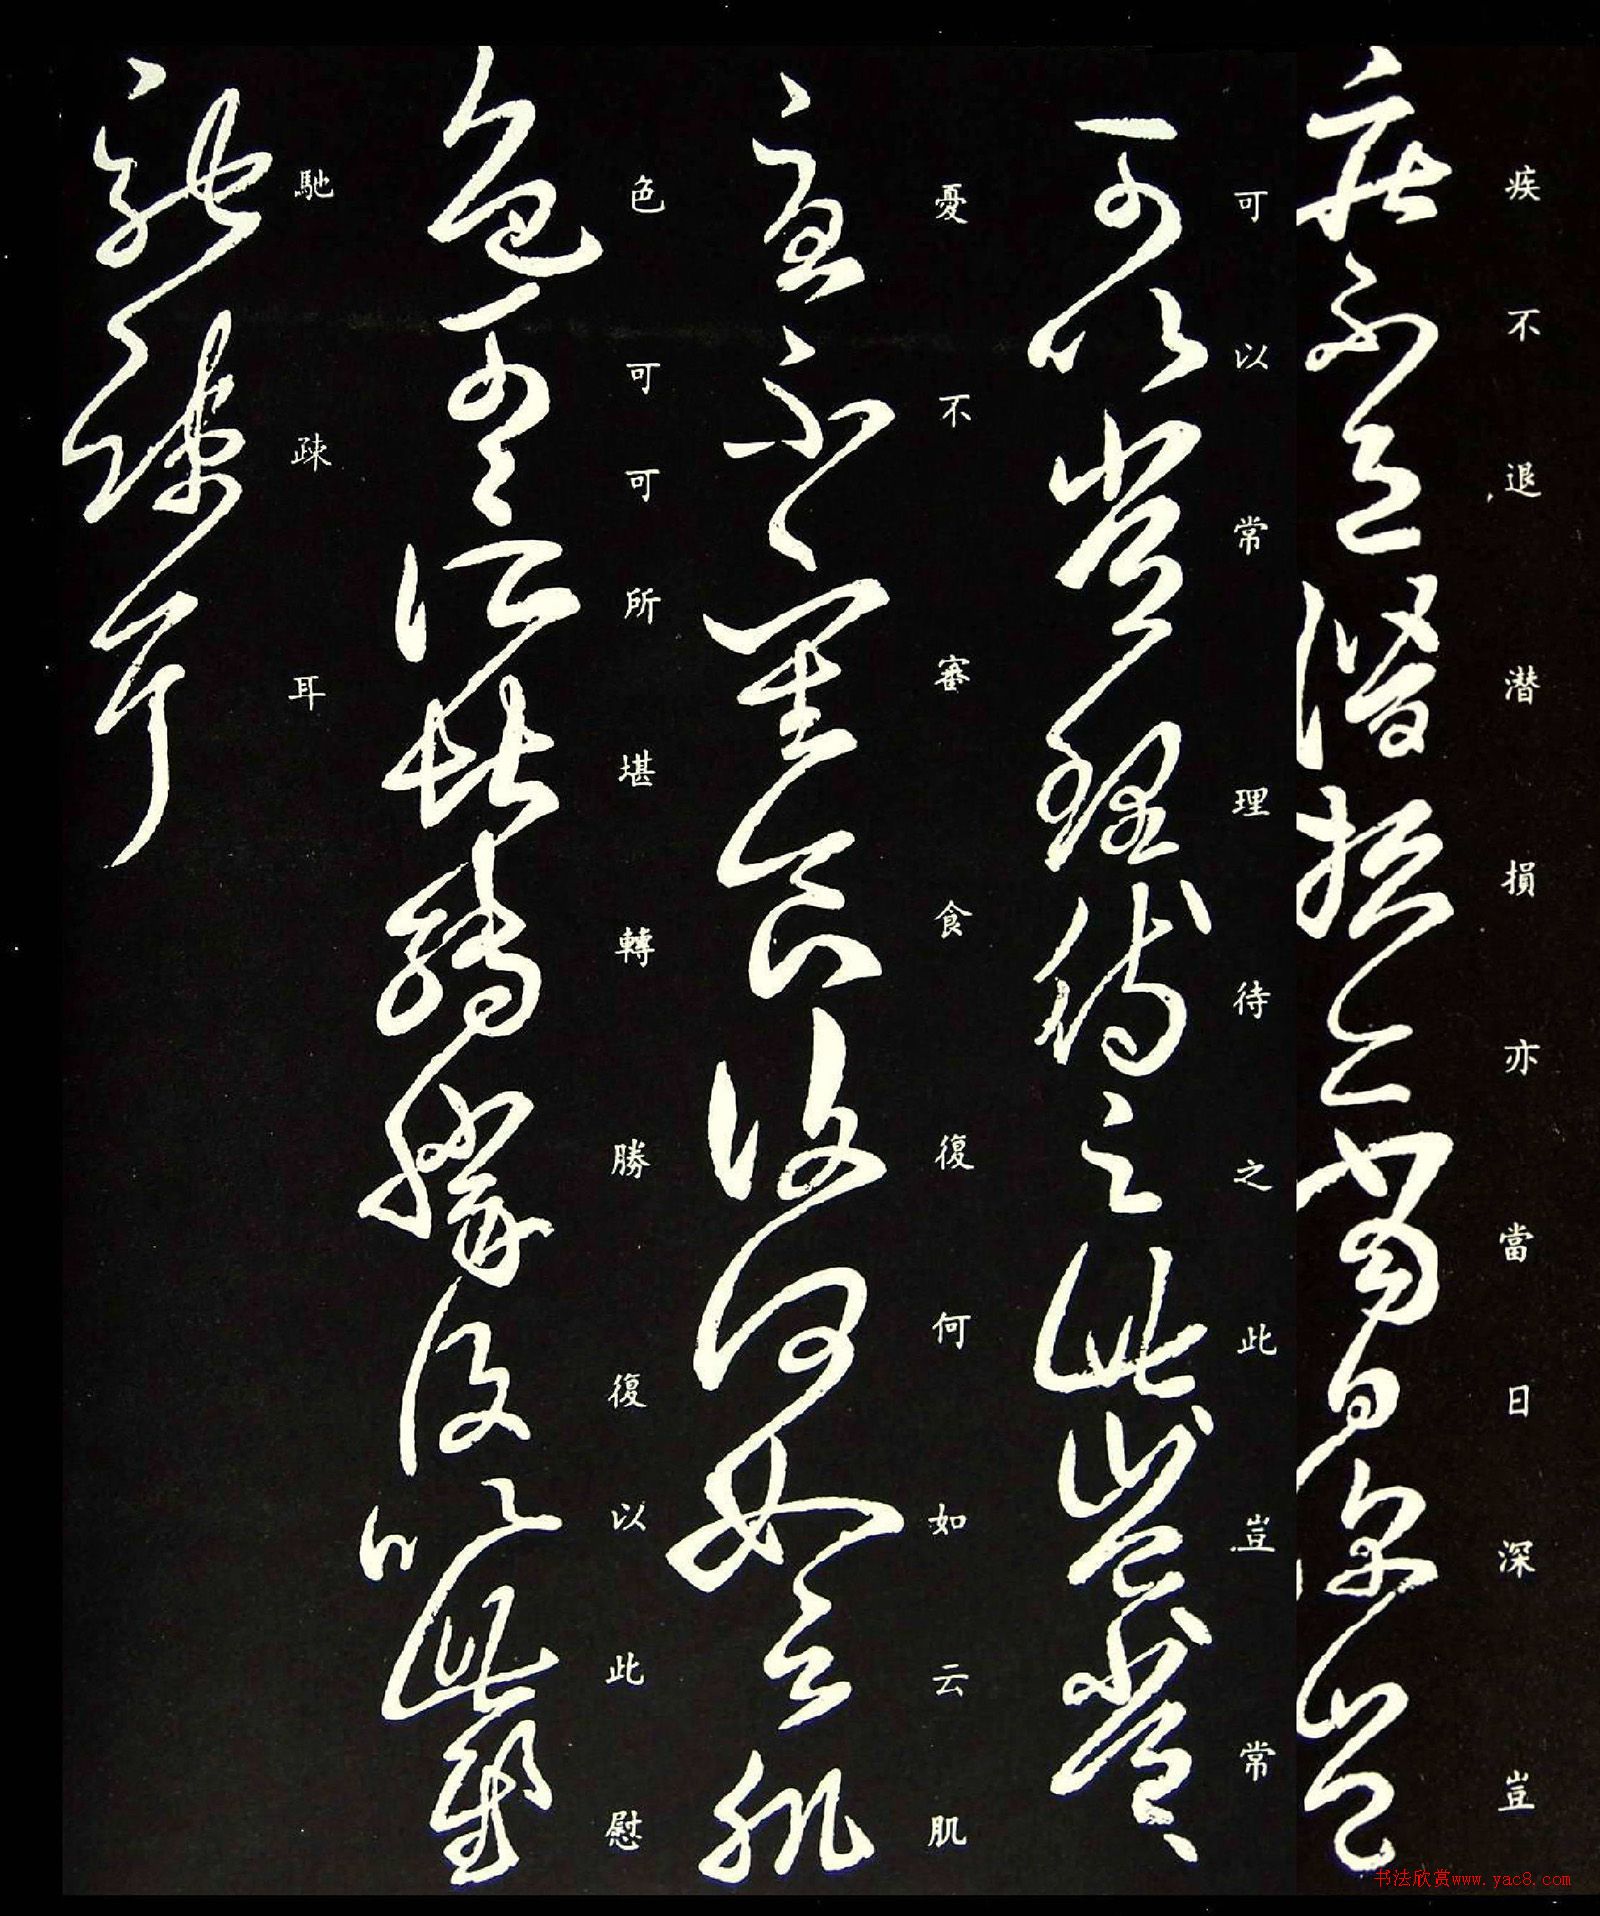 疾不退潜損亦當日深豈
可以常理待之此豈常
憂不審食復何如云肌
色可可所堪轉勝復以此慰
馳疎耳
书法欣赏www.yac8.com